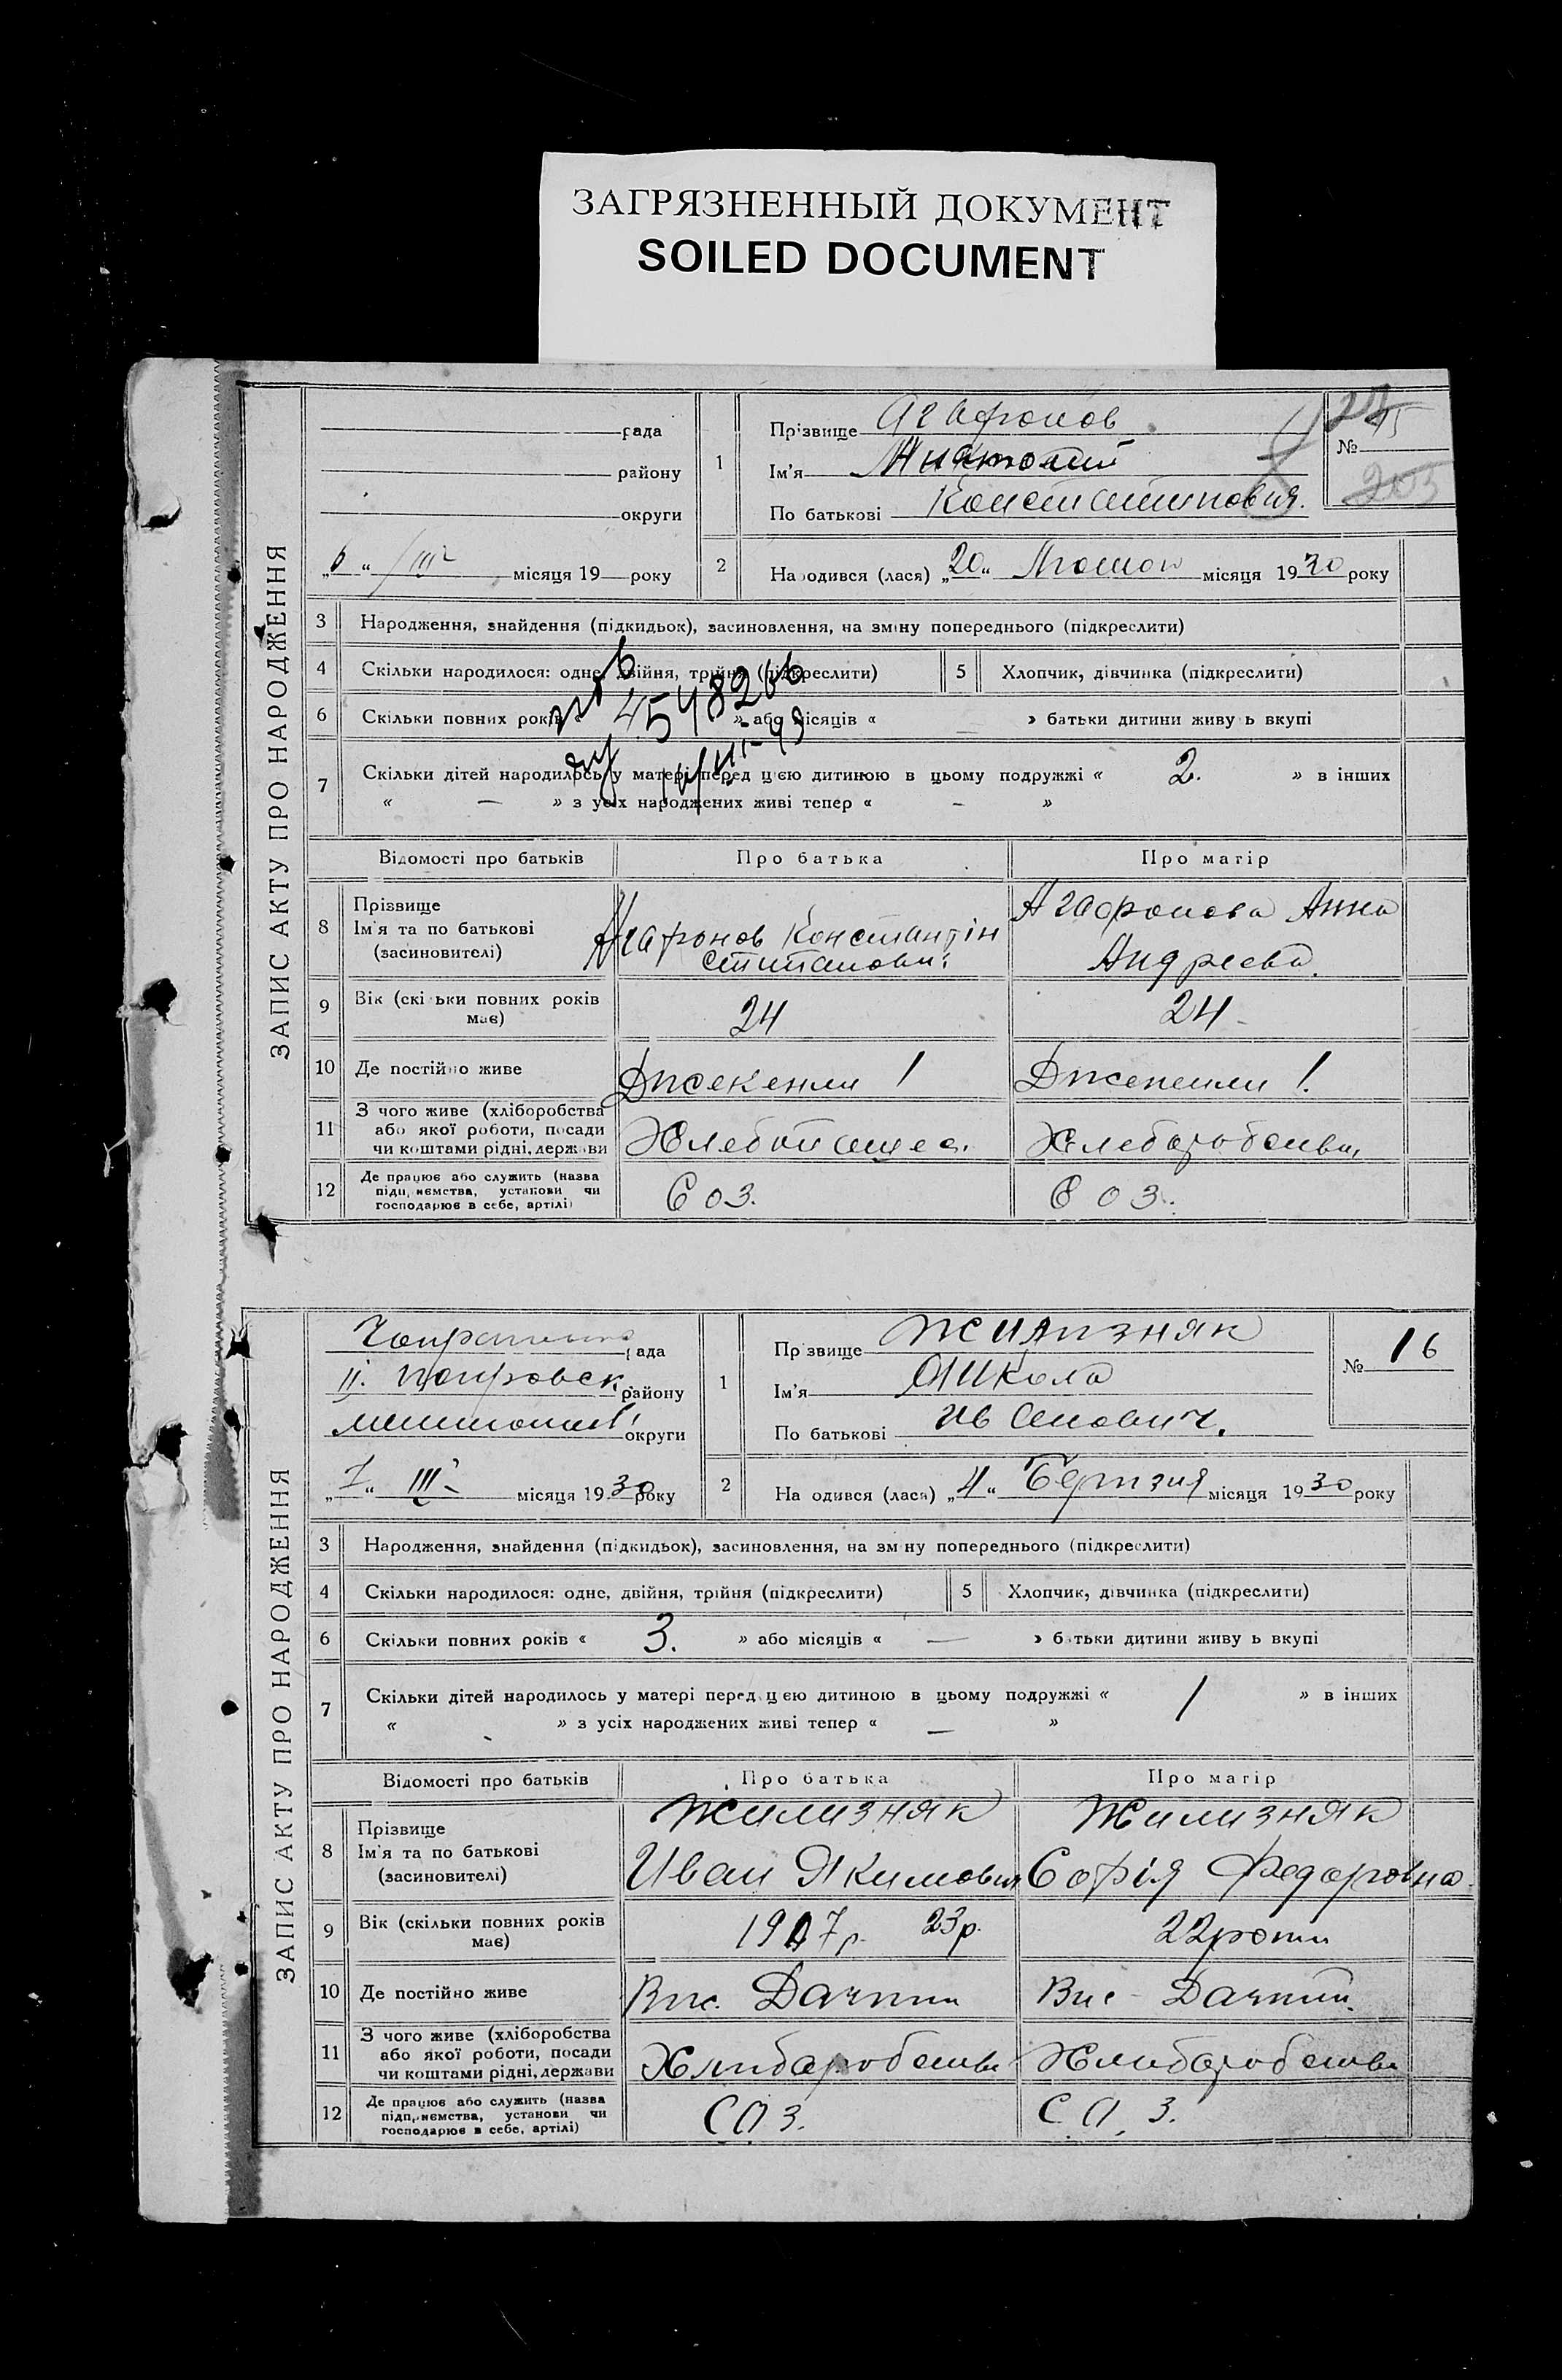 ЗАГРЯЗНЕННЫЙ ДОКУМЕНТ
SOILED DOCUMENT
ЗАПИС АКТУ ПРО НАРОДЖЕННЯ
рада
району
округи
„6“ III місяця 19 року
1
Прізвище Агафонов
Ім'я
По батькові Константинович.
№
2
Народився (лася) „20“ місяця 1930 року
3 Народження, знайдення (підкидьок), засиновлення, на зміну попереднього (підкреслити)
4 Скільки народилося: одне, двійня, трійня (підкреслити)
5 Хлопчик, дівчинка (підкреслити)
6 Скільки повних років « » або місяців « — » батьки дитини живуть вкупі
4548266
7 Скільки дітей народилось у матері перед цією дитиною в цьому подружжі « 2. » в інших
« — » з усіх народжених живі тепер « — »
Відомості про батьків Про батька Про матір
8 Прізвище
Ім'я та по батькові
(засиновителі)
Агафонов Константін
Агафонова Анна
Андреева.
9 Вік (скільки повних років
має)
24
24
10 Де постійно живе
11 З чого живе (хліборобства
або якої роботи, посади
чи коштами рідні, держави
12 Де працює або служить (назва
підприємства, установи чи
господарює в себе, артілі)
С О З.
С О З.
ЗАПИС АКТУ ПРО НАРОДЖЕННЯ
рада
району
округи
„7“ III місяця 1930 року
1
Прізвище Жилизняк
Ім'я Микола
По батькові Иванович.
№ 16
2
Народився (лася) „4“ Березня місяця 1930 року
3 Народження, знайдення (підкидьок), засиновлення, на зміну попереднього (підкреслити)
4 Скільки народилося: одне, двійня, трійня (підкреслити)
5 Хлопчик, дівчинка (підкреслити)
6 Скільки повних років « 3. » або місяців « — » батьки дитини живуть вкупі
7 Скільки дітей народилось у матері перед цією дитиною в цьому подружжі « 1 » в інших
« » з усіх народжених живі тепер « — »
Відомості про батьків Про батька Про матір
8 Прізвище
Ім'я та по батькові
(засиновителі)
Жилизняк
Иван Якимович
Жилизняк
Софія Федоровна
9 Вік (скільки повних років
має)
1907р. 23р.
22роки
10 Де постійно живе
Вис. Дачний
Вис Дачний.
11 З чого живе (хліборобства
або якої роботи, посади
чи коштами рідні, держави
Хлиборобства
Хлиборобства
12 Де працює або служить (назва
підприємства, установи чи
господарює в себе, артілі)
С О З.
С. О. З.